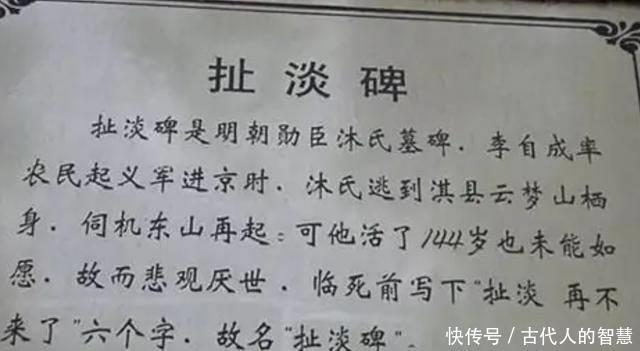 扯淡碑
扯淡碑是明朝勋臣沐氏墓碑．李自成率
农民起义军进京时．沐氏逃到淇县云梦山栖
身．伺机东山再起；可他活了144岁也未能如
愿．故而悲观厌世．临死前写下"扯淡 再不
来了"六个字．故名"扯淡碑"．
快传号／古代人的智慧